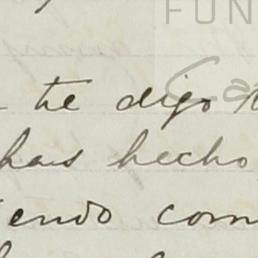 FUN
te digo
has hecho
endo com